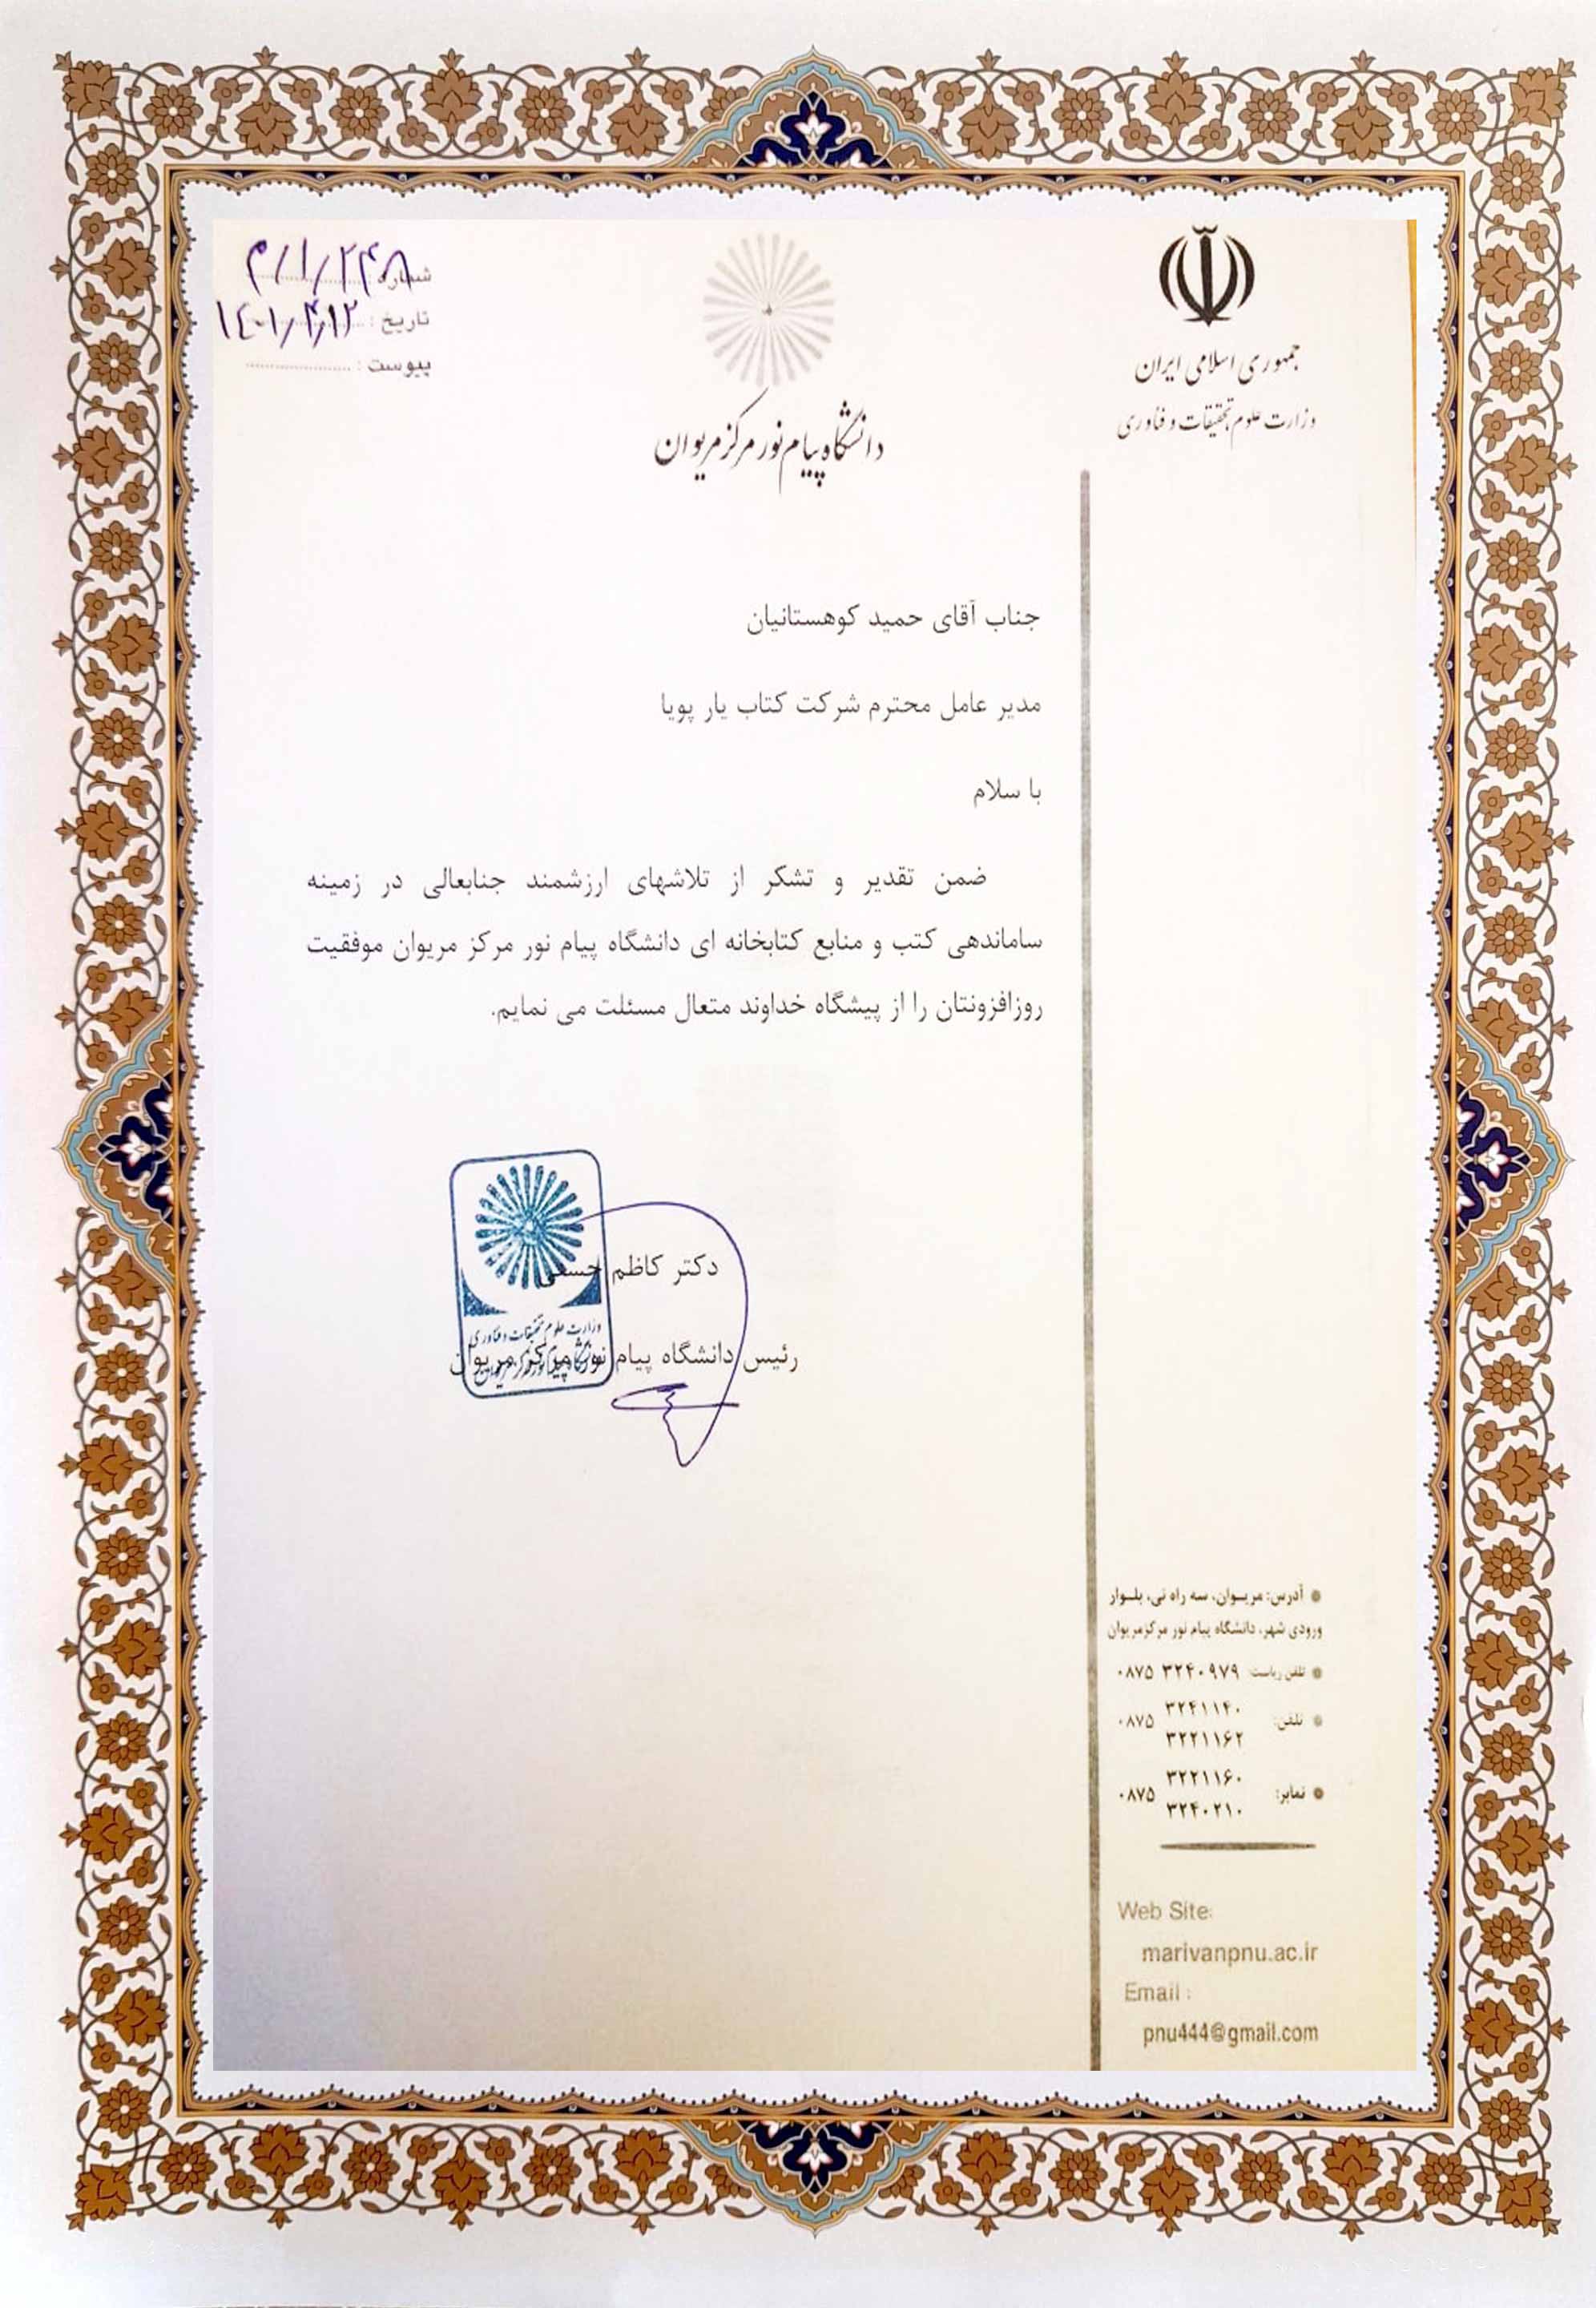 جمهوری اسلامی ایران
وزارت علوم، تحقیقات و فناوری
دانشگاه پیام نور مرکز مریوان
شماره: ۲۴۸/۱/م
تاریخ: ۱۴۰۱/۴/۱۲
پیوست:
جناب آقای حمید کوهستانیان
مدیر عامل محترم شرکت کتاب یار پویا
با سلام
ضمن تقدیر و تشکر از تلاشهای ارزشمند جنابعالی در زمینه
ساماندهی کتب و منابع کتابخانه ای دانشگاه پیام نور مرکز مریوان موفقیت
روزافزونتان را از پیشگاه خداوند متعال مسئلت می نمایم.
دکتر کاظم
رئیس دانشگاه پیام نور مرکز مریوان
وزارت علوم تحقیقات و فناوری
آدرس: مریوان، سه راه نی، بلوار
ورودی شهر، دانشگاه پیام نور مرکز مریوان
تلفن ریاست: ۳۲۴۰۹۷۹ ۰۸۷۵
تلفن: ۳۲۴۱۱۴۰ ۰۸۷۵
۳۲۲۱۱۶۲
نمابر: ۳۲۲۱۱۶۰ ۰۸۷۵
۳۲۴۰۲۱۰
Web Site:
marivanpnu.ac.ir
Email :
pnu444@gmail.com